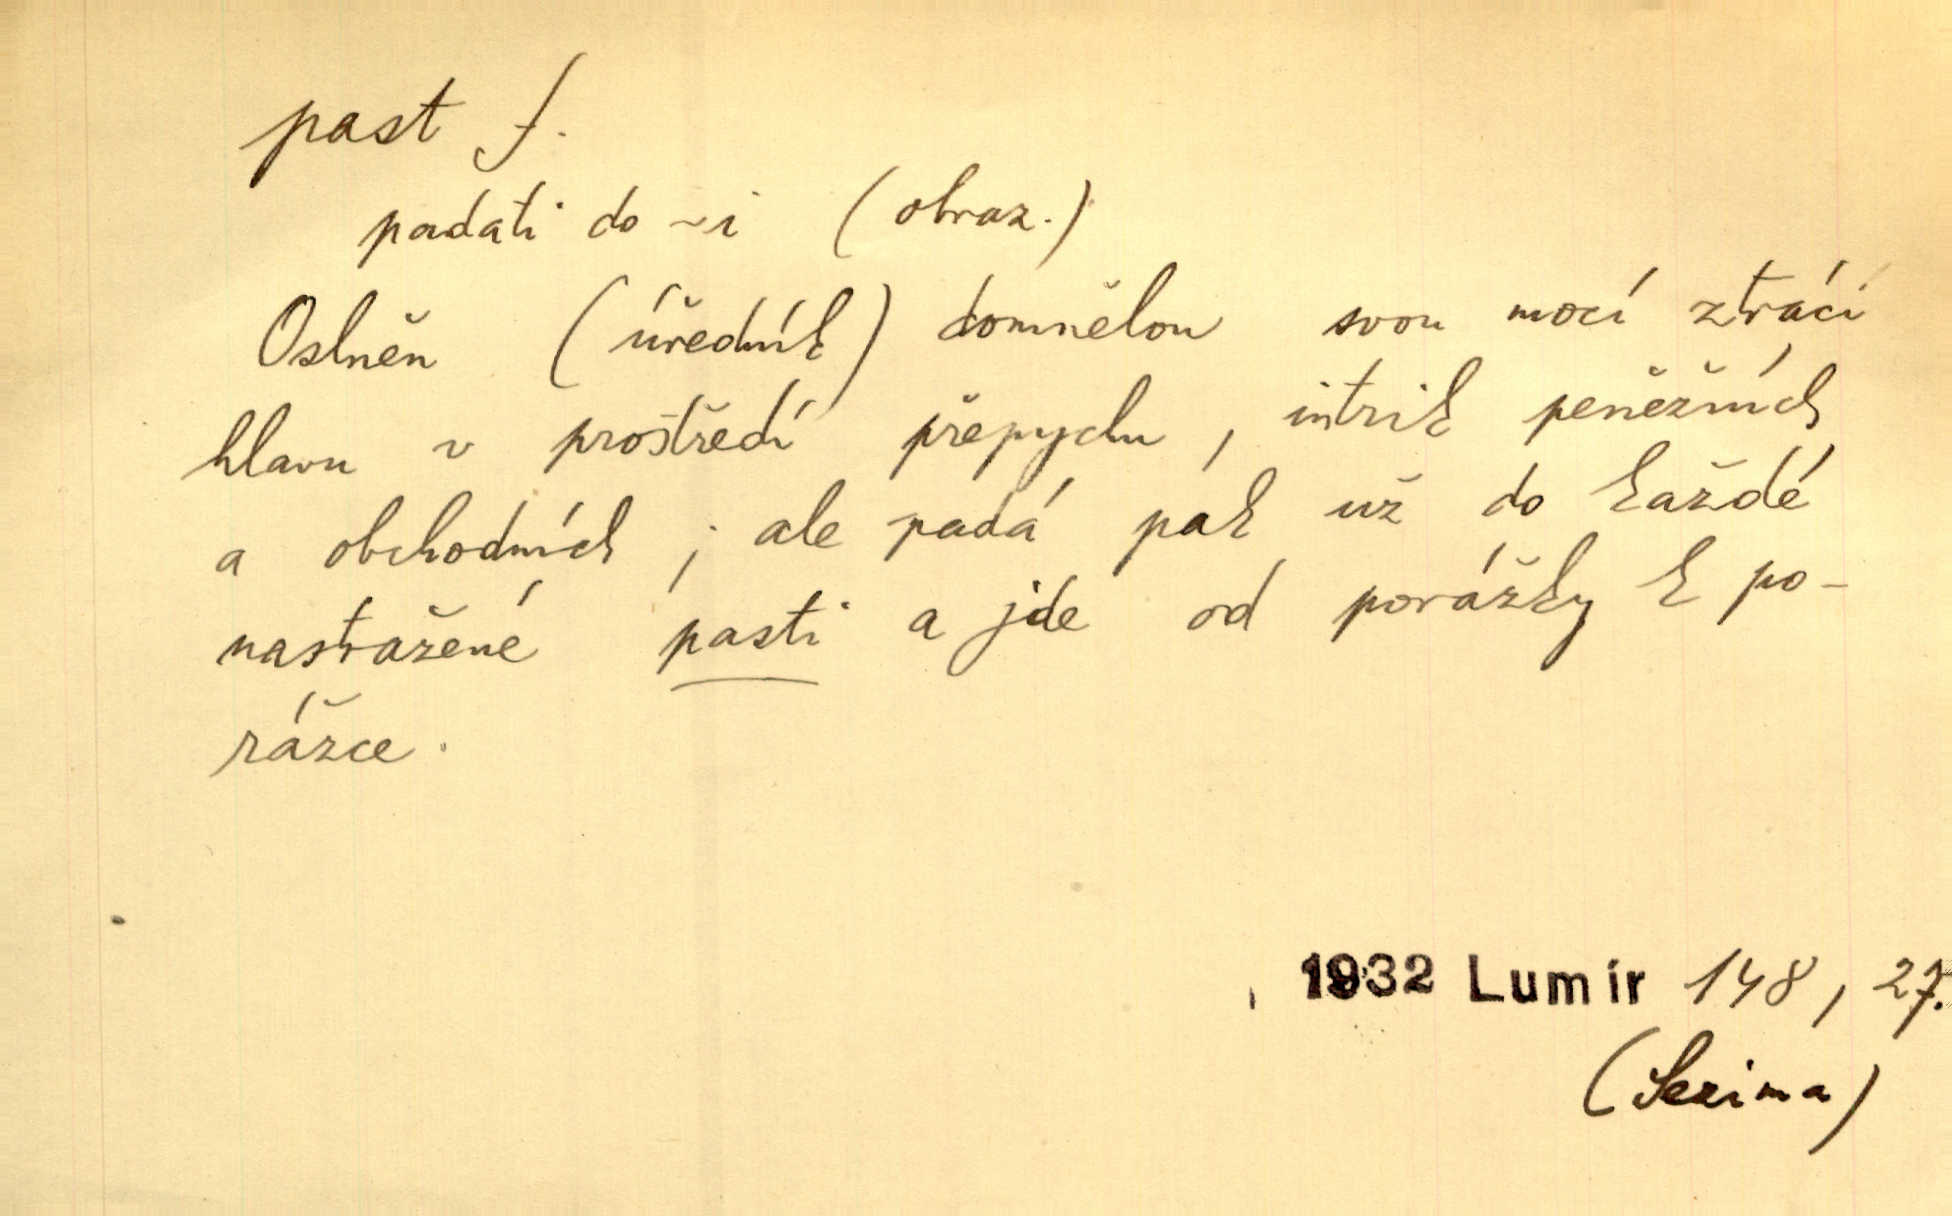 past f.
padati do ~i (obraz.)
Oslněn (úředník) domnělou svou mocí ztrácí
hlavu v prostředí přepychu, intrik peněžních
a obchodních; ale padá pak už do každé
nastražené pasti a jde od porážky k po-
rážce.
1932 Lumír 148, 27.
(Sezima)